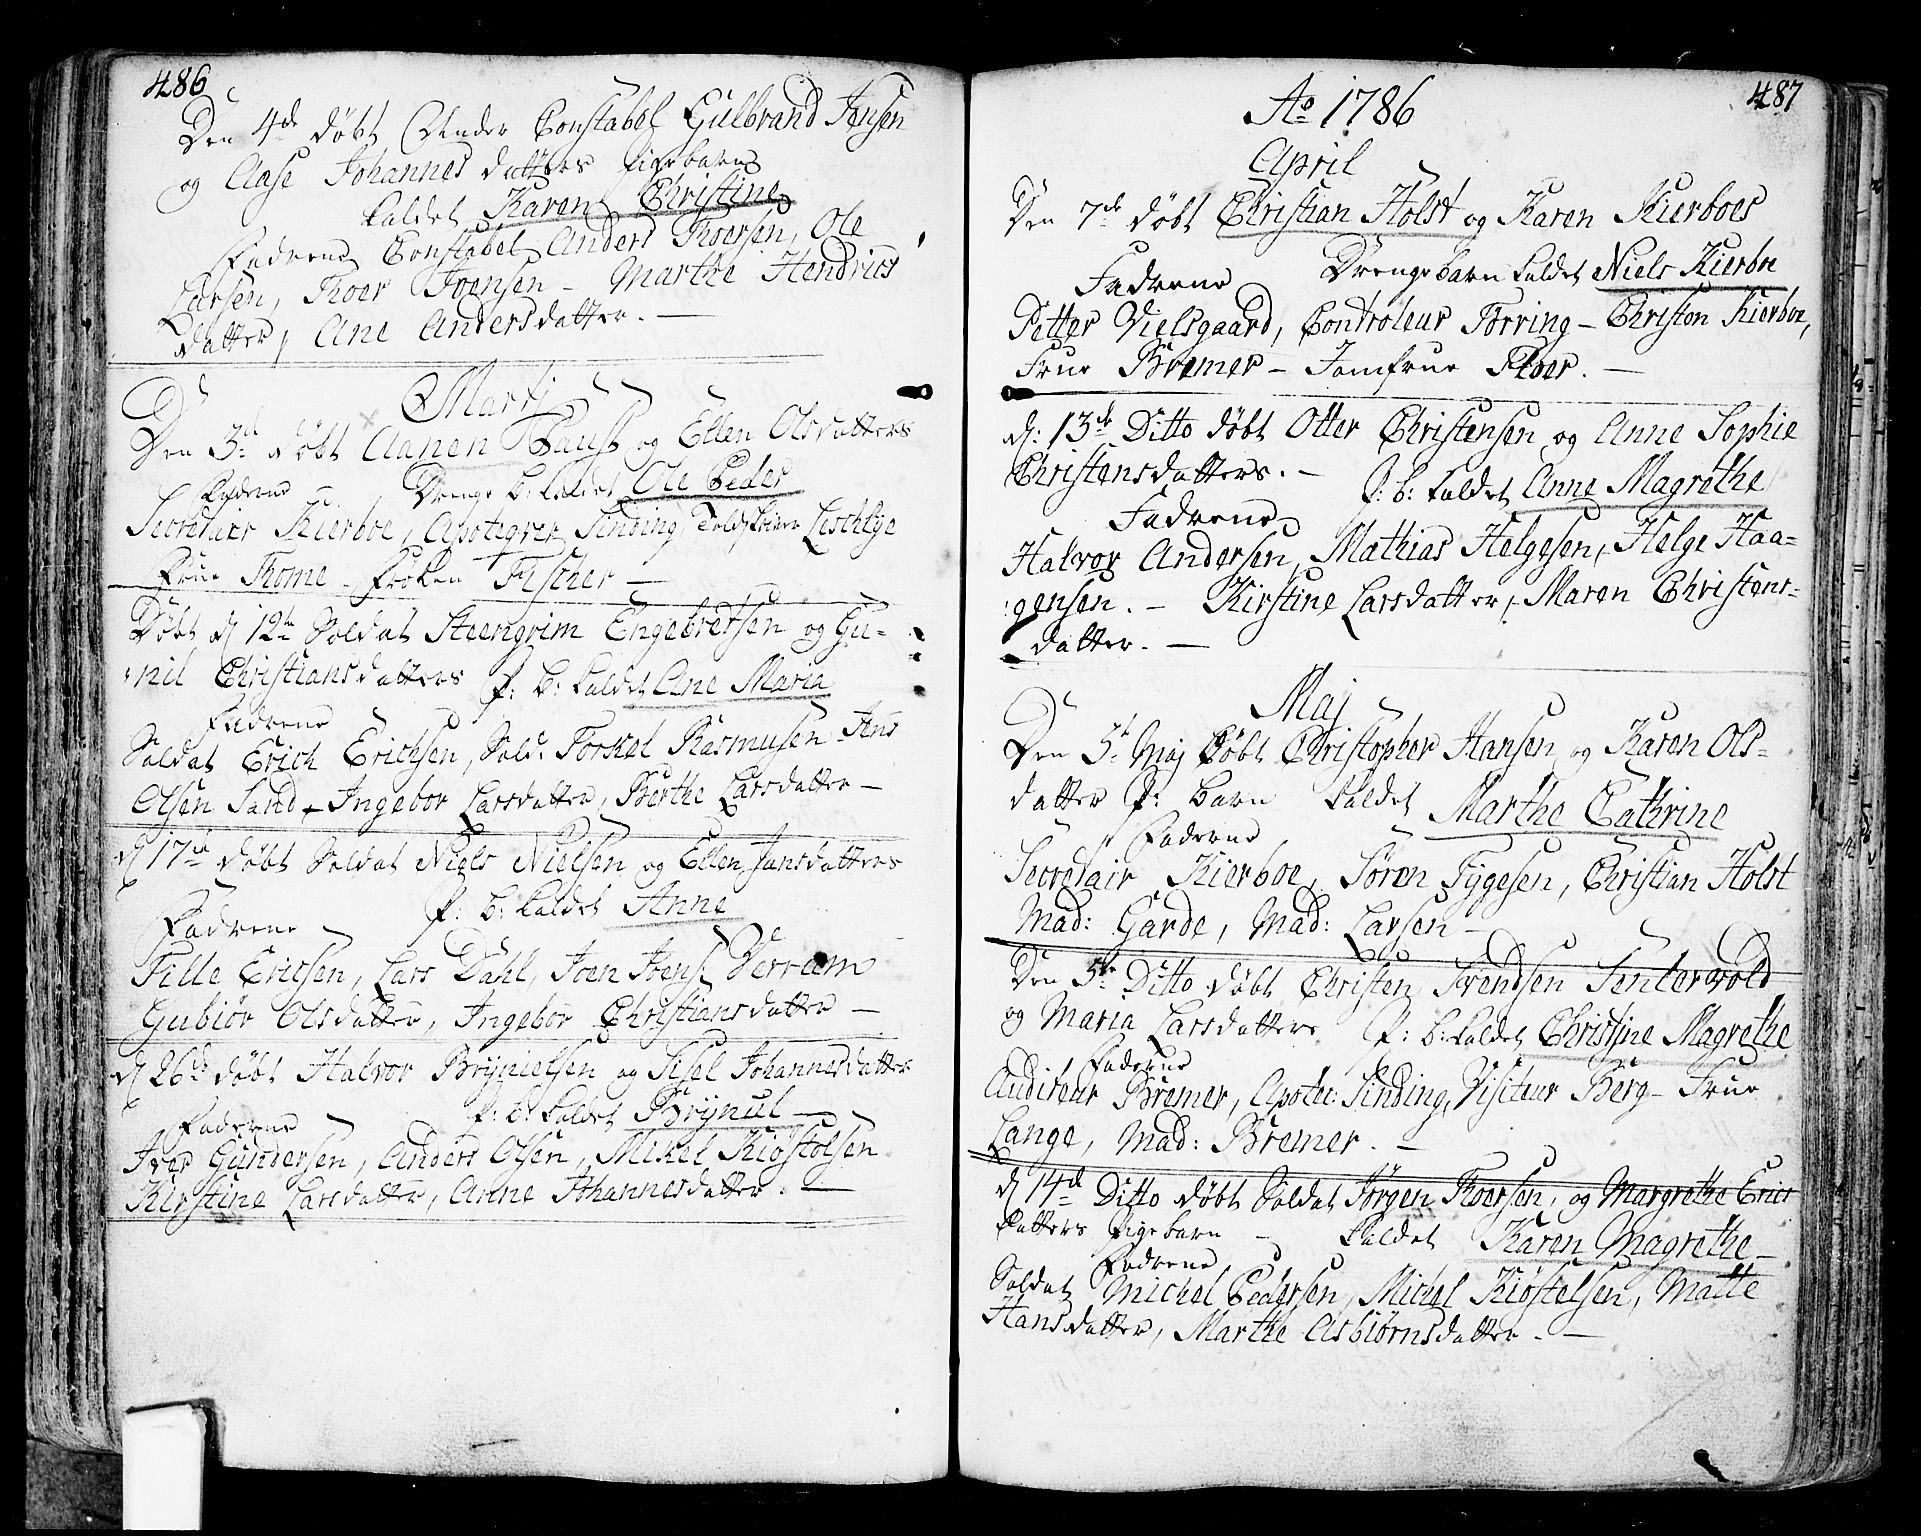 486
Den 4de døbt Under Constabel Gulbrand Jensen
og Aase Johannes datters Pigebarn
kaldet Karen Christine
Faddrene Constabel Anders Thoersen, Ole
Larsen, Thoer Svensen - Marthe Hendrics
datter, Ane Andersdatter. —
Martj
Den 3de døbt Aanen Faust og Ellen Olsdatters
Fadrene Drenge b: kaldet Ole Peder
Secretair Kierboe, Apoteqver Sinding Toldskriver Leschlye
Frue Thome - Frøken Fischer —
Døbt d 12te Soldat Steengrim Engebretsen og Gu-
:nil Christiansdatters P: b: kaldet Ane Maria
Fadrene
Soldat Erich Erichsen, Sold: Torkel Rasmusen Jens
Olsen Sand - Ingebor Larsdatter, Berthe Larsdatter —
d 17de døbt Soldat Niels Nielsen og Ellen Jansdatters
P: b: kaldet Anne
Fadrene
Tille Ericsen, Lars Dahl, Joen Joens: Verrem
Gubiør Olsdatter, Ingebor Christiansdatter —
d 26de døbt Halvor Brynielsen og Sisel Johannesdatter
P: b: kaldet Brynul —
Fadrene
Iver Gundersen, Anders Olsen, Mikel Kiøstolsen
Kirstine Larsdatter, Anne Johannesdatter. —
487
Ao 1786
April
Den 7de døbt Christian Holst og Karen Kierboes
Drengebarn kaldet Niels Kierboe
Fadrene
Petter Vielsgaard, Controleur Tørring - Christen Kierboe,
Frue Bremer - Jomfrue Ploer. —
d: 13de Ditto døbt Otter Christensen og Anne Sophie
Christensdatters. - P: b: kaldet Anne Magrethe
Fadrene
Halvor Andersen, Mathias Helgesen, Helge Haa-
:gensen. - Kirstine Larsdatter, Maren Christens-
datter. —
Maj
Den 5t Maj døbt Christopher Hansen og Karen Ols-
datter P: Barn kaldet Marthe Cathrine
Fadrene
Secretair Kierboe, Søren Tygesen, Christian Holst
Mad: Garde, Mad: Larsen —
Den 5te Ditto døbt Christen Svendsen Sintervold
og Maria Larsdatters P: b: kaldet Christine Magrethe
Fadrene
Auditeur Bremer, Apotec: Sinding, Visiteur Berg - Frue
Lange, Mad: Bremer. —
d 14de Ditto døbt Soldat Jørgen Thoersen, og Margrethe Erics
datters Pigebarn - kaldet Karen Magrethe —
Fadrene
Soldat Michel Pedersen, Michel Kiøstelsen, Matte
Hansdatter, Marthe Asbiørnsdatter. —